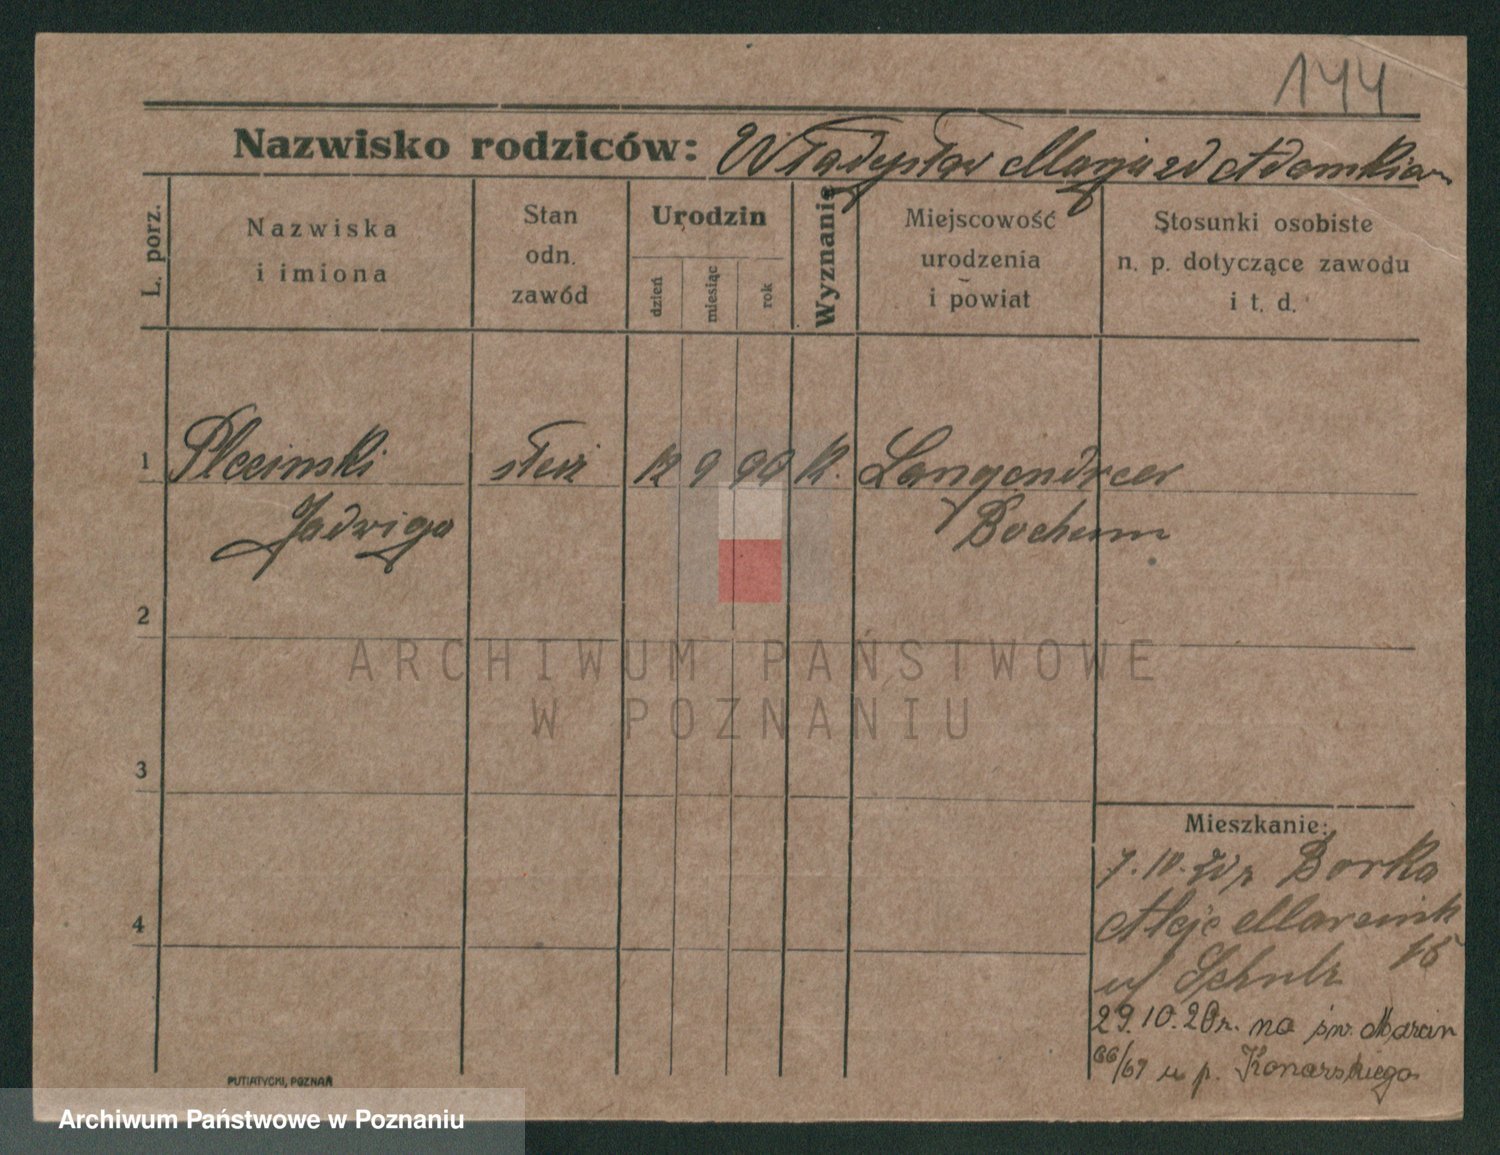 144
Nazwisko rodziców: Władysław Marja zd Adamkiew
L. porz.
Nazwiska
i imiona
Stan
odn.
zawód
Urodzin
dzień
miesiąc
rok
Wyznanie
Miejscowość
urodzenia
i powiat
Stosunki osobiste
n. p. dotyczące zawodu
i t. d.
1 Plecinski służ 12 9 00 k. Langendreer
Jadwiga Bochum
2
3
4
ARCHIWUM PAŃSTWOWE
W POZNANIU
Mieszkanie:
7.10. Borka
Aleje Marcink
15
u/ Schulz
29.10.20r. na św. Marcin
66/67 u p. Konarskiego
PUTIATYCKI, POZNAŃ
Archiwum Państwowe w Poznaniu